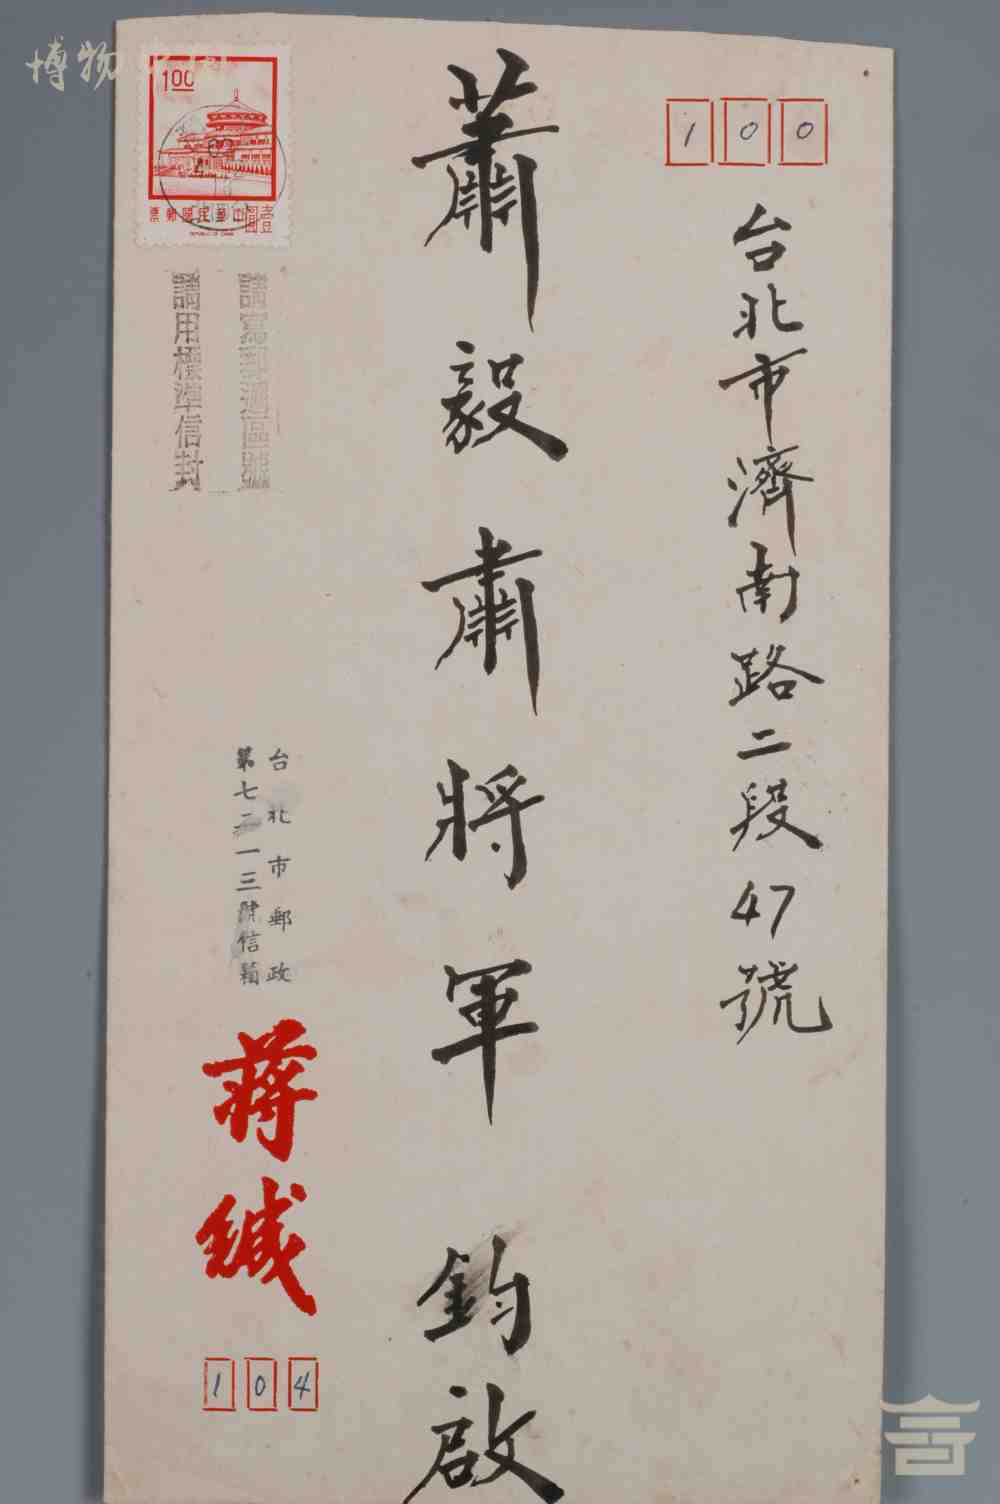 100
台北市濟南路二段47號
蕭毅肅將軍鈞啟
1.00
中華民國郵票
壹圓
REPUBLIC OF CHINA
請寫郵遞區號
請用標準信封
台北市郵政
第七二一三號信箱
蔣緘
104
博物